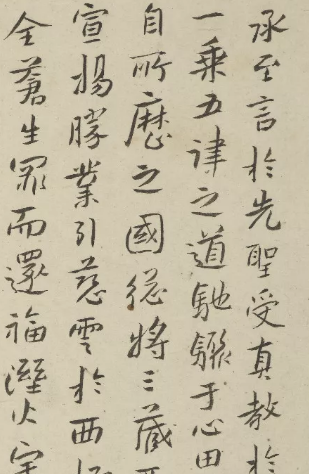 承至言於先聖受真教於
一乘五律之道馳驟于心田
自所歷之國總將三藏
宣揚勝業引慈雲於西極
全蒼生罪而還福濕火宅